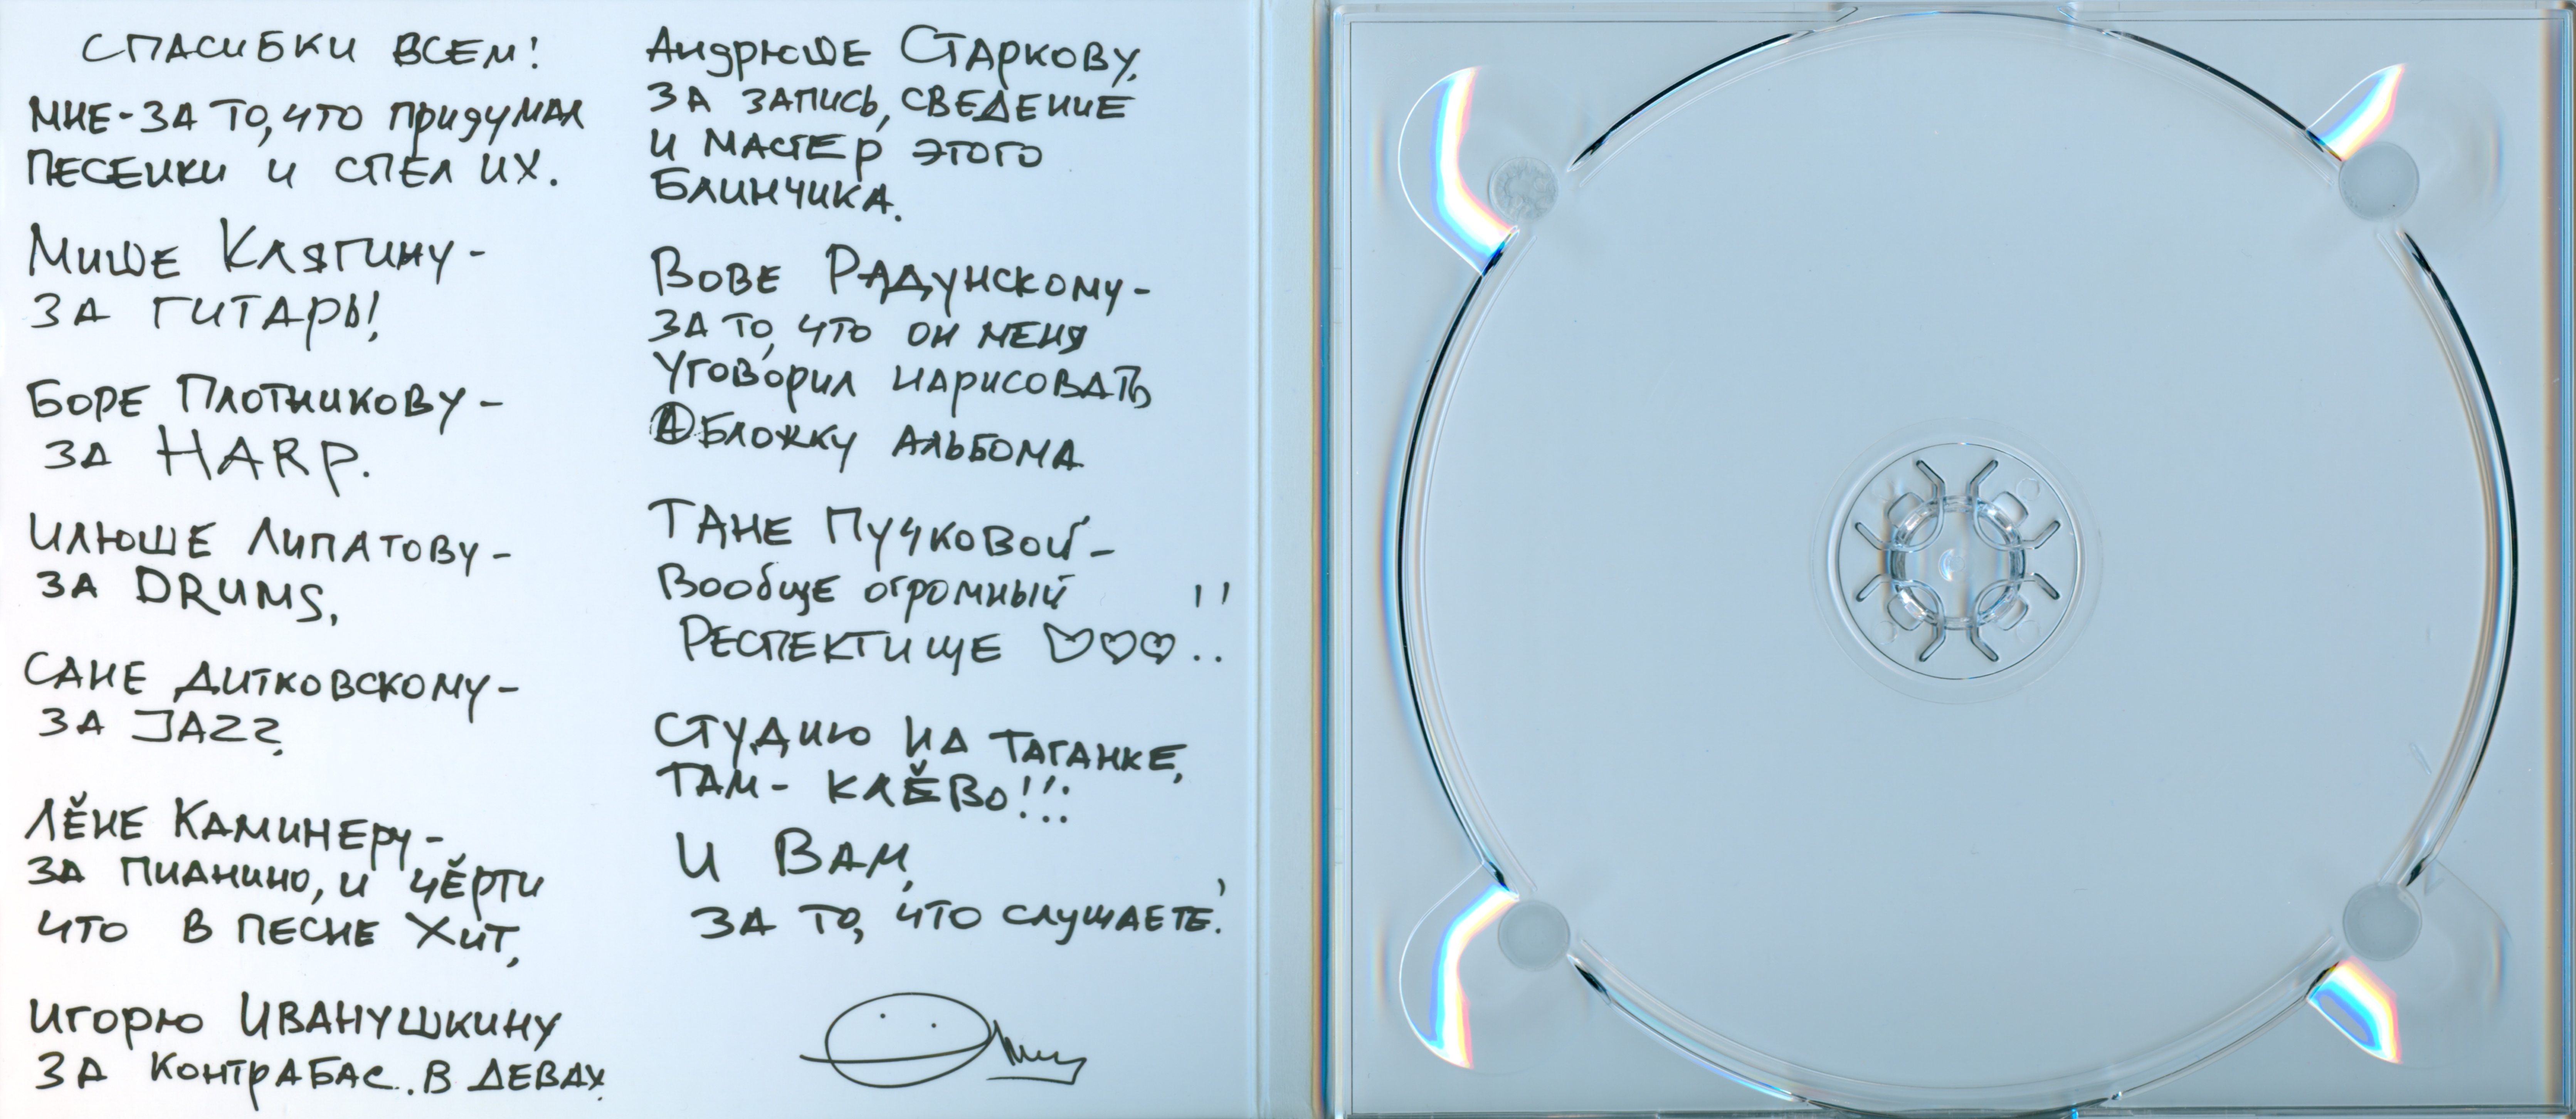 СПАСИБКИ ВСЕМ!
МНЕ-ЗА ТО, ЧТО ПРИДУМАЛ
ПЕСЕНКИ И СПЕЛ ИХ.
МИШЕ КЛЯГИНУ-
ЗА ГИТАРЫ!
БОРЕ ПЛОТНИКОВУ-
ЗА HARP.
ИЛЮШЕ ЛИПАТОВУ-
ЗА DRUMS,
САНЕ ДИТКОВСКОМУ-
ЗА JAZZ,
ЛЁНЕ КАМИНЕРУ-
ЗА ПИАНИНО, И ЧЁРТИ
ЧТО В ПЕСНЕ ХИТ,
ИГОРЮ ИВАНУШКИНУ
ЗА КОНТРАБАС. В ДЕВАХ.
АНДРЮШЕ СТАРКОВУ,
ЗА ЗАПИСЬ, СВЕДЕНИЕ
И МАСТЕР ЭТОГО
БЛИНЧИКА.
ВОВЕ РАДУНСКОМУ-
ЗА ТО, ЧТО ОН МЕНЯ
УГОВОРИЛ НАРИСОВАТЬ
АБЛОЖКУ АЛЬБОМА
ТАНЕ ПУЧКОВОЙ-
ВООБЩЕ ОГРОМНЫЙ
РЕСПЕКТИЩЕ ♡♡♡!!
СТУДИЮ НА ТАГАНКЕ,
ТАМ- КЛЁВО!!!
И ВАМ,
ЗА ТО, ЧТО СЛУШАЕТЕ!